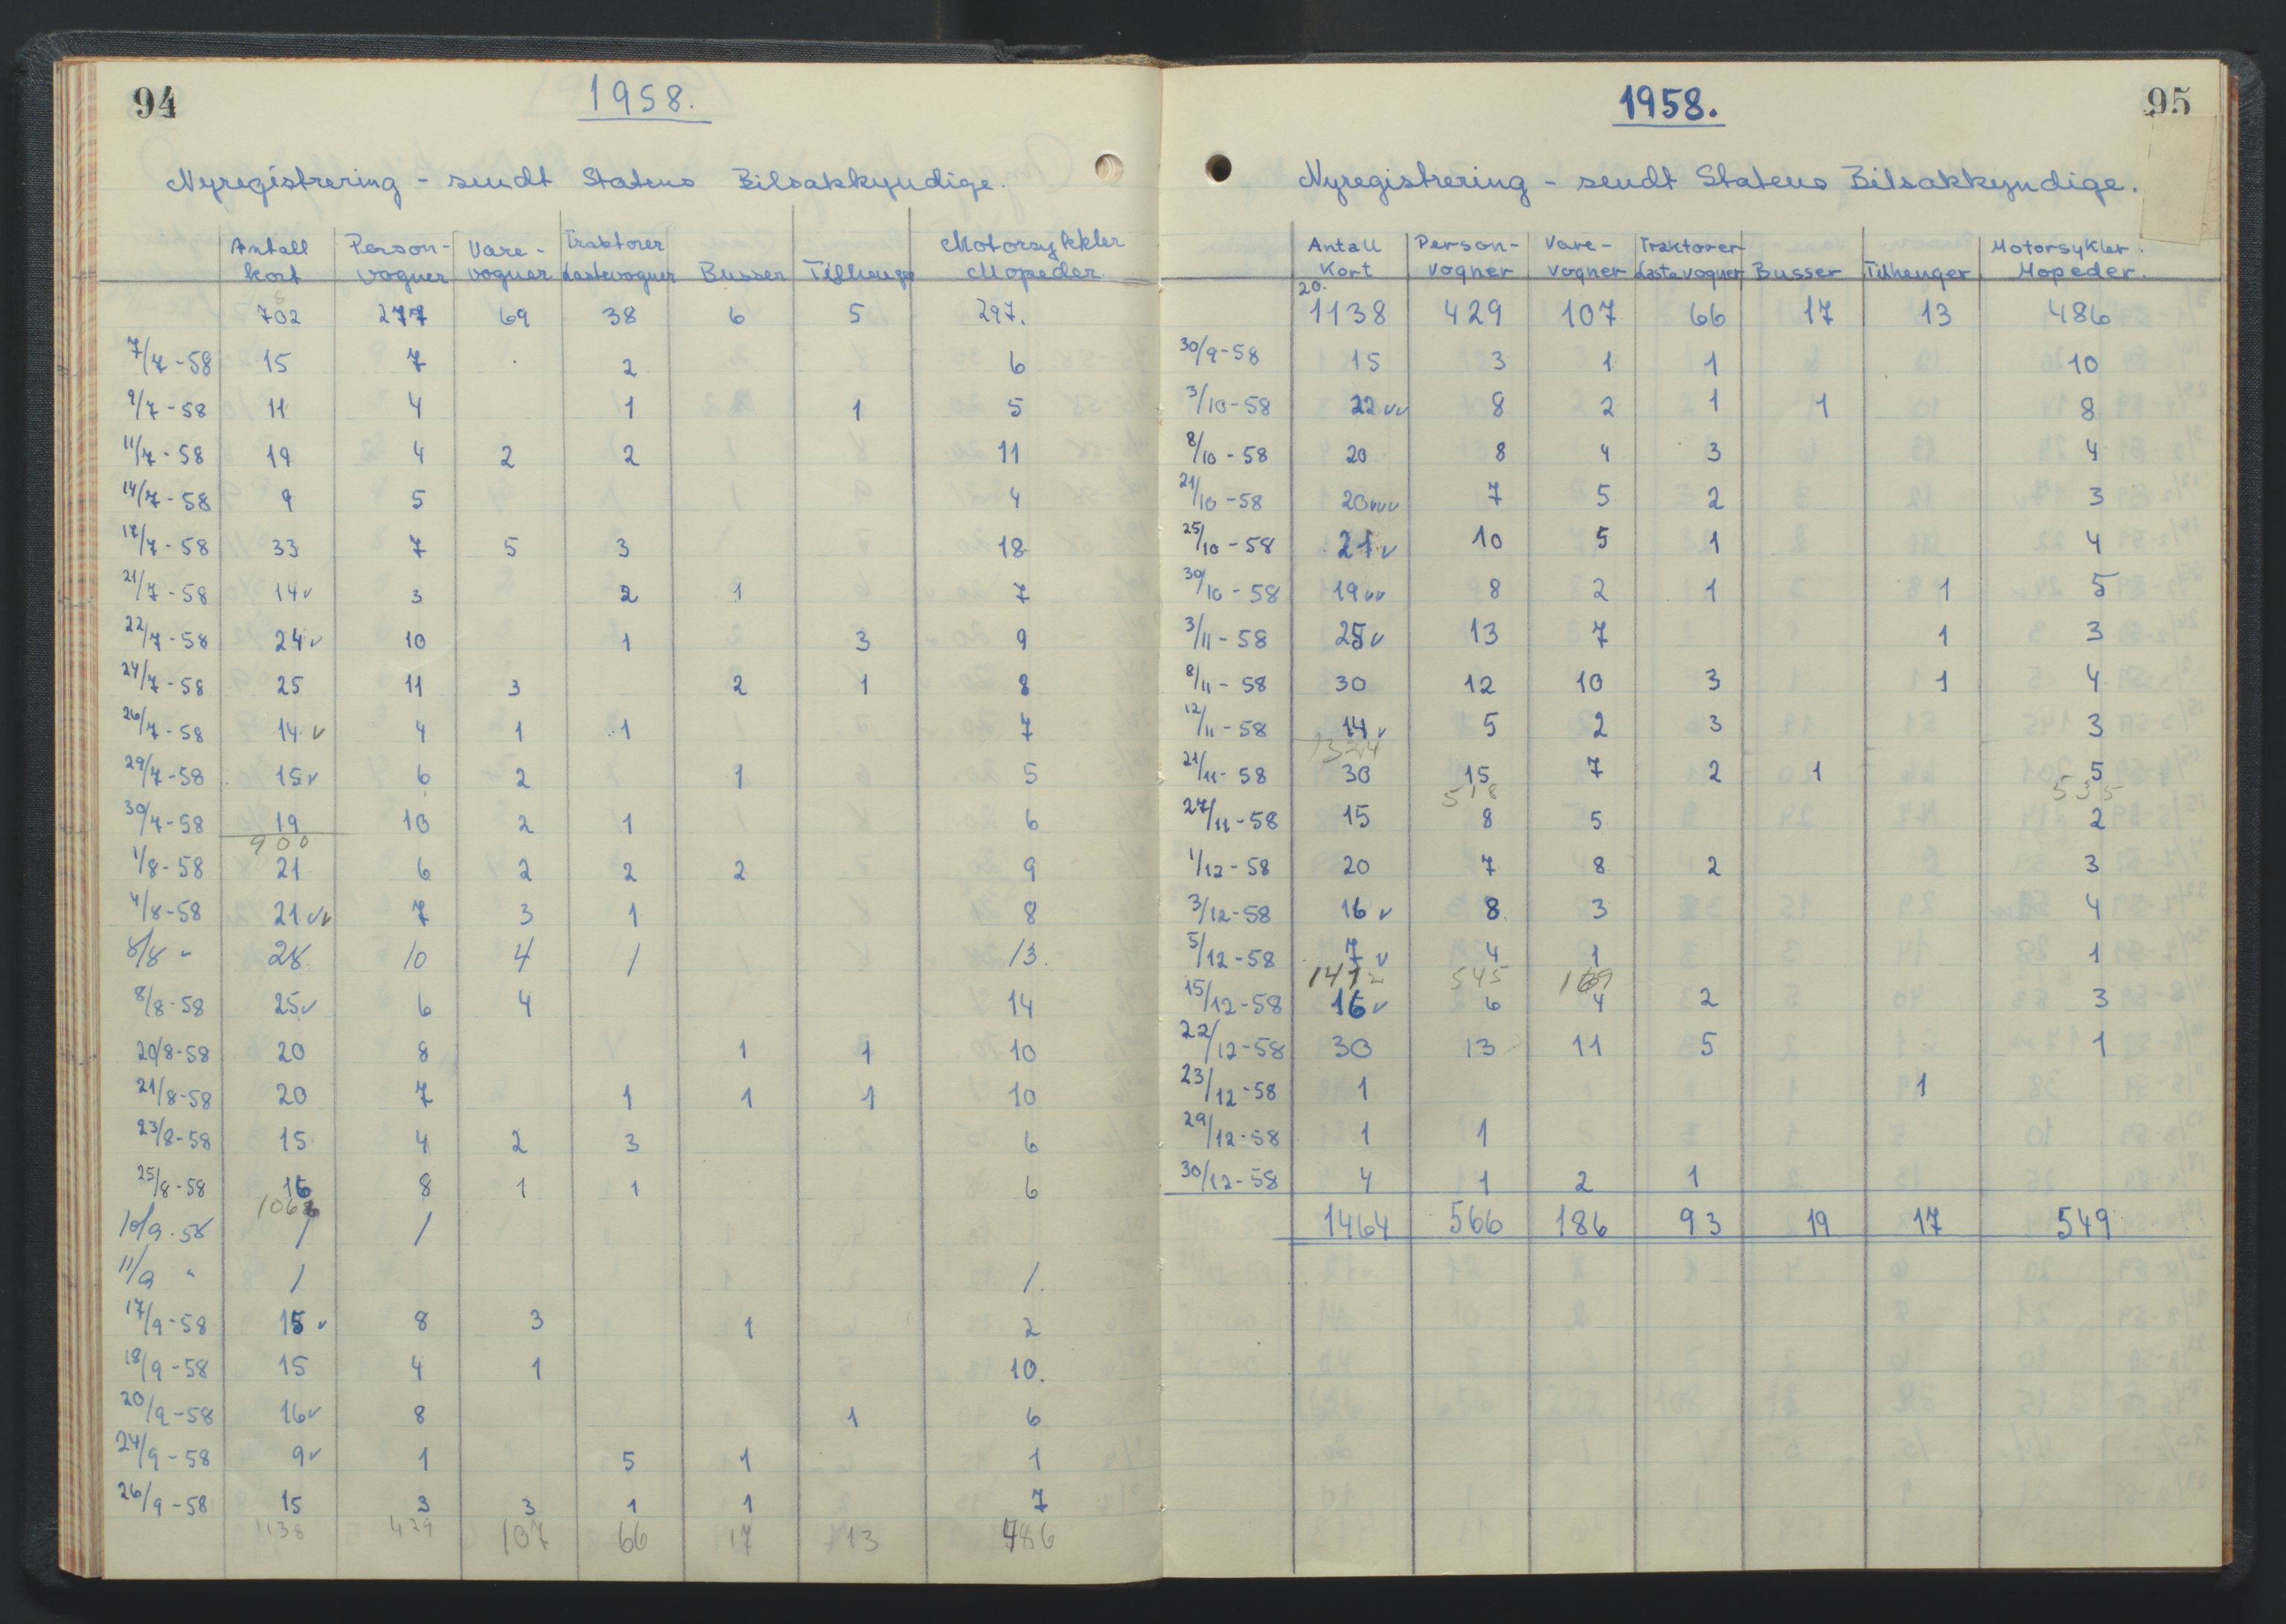 94
1958.
Nyregistrering - sendt Statens Bilsakkyndige.
Antall kort Person- vogner Vare- vogner Traktorer Lastevogner Busser Tilhenger Motorsykkler Mopeder
702 277 69 38 6 5 297.
7/7-58 15 7 2 6
9/7-58 11 4 1 1 5
11/7-58 19 4 2 2 11
14/7-58 9 5 4
17/7-58 33 7 5 3 18
21/7-58 14v 3 2 1 7
22/7-58 24v 10 1 3 9
24/7-58 25 11 3 2 1 8
26/7-58 14v 4 1 1 7
29/7-58 15v 6 2 1 5
30/7-58 19 10 2 1 6
900
1/8-58 21 6 2 2 2 9
4/8-58 21vv 7 3 1 8
8/8 " 28 10 4 1 13.
8/8-58 25v 6 4 14
20/8-58 20 8 1 1 10
21/8-58 20 7 1 1 1 10
23/8-58 15 4 2 3 6
25/8-58 16 8 1 1 6
1066
10/9-58 1 1
11/9 " 1 1.
17/9-58 15v 8 3 1 2
18/9-58 15 4 1 10.
20/9-58 16v 8 1 6
24/9-58 9v 1 5 1 1
26/9-58 15 3 3 1 1 7
1138 429 107 66 17 13 486
95
1958.
Nyregistrering - sendt Statens Bilsakkyndige.
Antall Kort Person- vogner Vare- vogner Traktorer Lastevogner Busser Tilhenger Motorsykler. Mopeder.
20.
1138 429 107 66 17 13 486
30/9-58 15 3 1 1 10
3/10-58 22vv 8 2 1 1 8
8/10-58 20 8 4 3 4
21/10-58 20vvv 7 5 2 3
25/10-58 21v 10 5 1 4
30/10-58 19vv 8 2 1 1 5
3/11-58 25v 13 7 1 3
8/11-58 30 12 10 3 1 4
12/11-58 14v 5 2 3 3
1324
21/11-58 30 15 7 2 1 5
518 535
27/11-58 15 8 5 2
1/12-58 20 7 8 2 3
3/12-58 16v 8 3 4
5/12-58 7v 4 1 1
1412 545 169
15/12-58 16v 6 4 2 3
22/12-58 30 13 11 5 1
23/12-58 1 1
29/12-58 1 1
30/12-58 4 1 2 1
1464 566 186 93 19 17 549